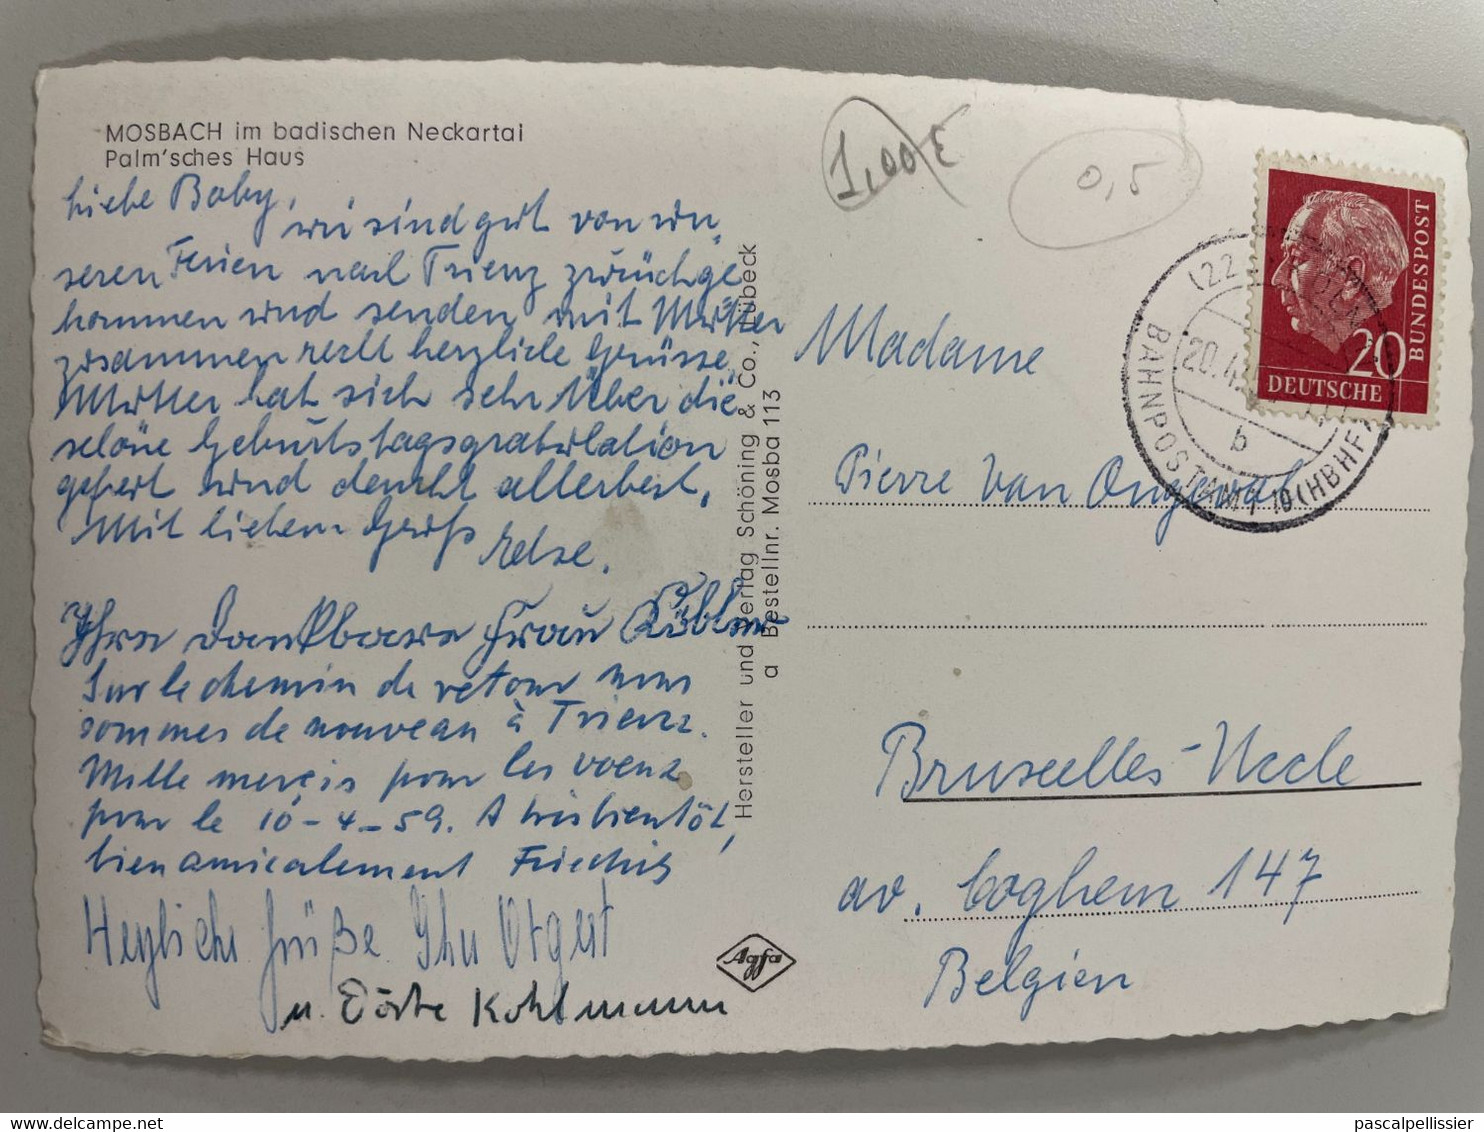 MOSBACH im badischen Neckartal
Palm'sches Haus
Liebe Baby,
wir sind gut von un-
seren Ferien nach Trienz zurückge
kommen und senden mit Mutter
zusammen recht herzliche Grüsse.
Mutter hat sich sehr über die
schöne Geburtstagsgratulation
gefreut und dankt allerbest.
Mit lieben Gruß
Ihre dankbare Frau
Sur le chemin de retour nous
sommes de nouveau à Trienz.
Mille mercis pour les voeux
pour le 10-4-59. A très bientôt,
bien amicalement
Herzliche Grüße Ihr
u. Dörte Kohlmann
Hersteller und Verlag Schöning & Co., Lübeck
a Bestellnr. Mosba 113
Agfa
1,00 €
0,5
DEUTSCHE BUNDESPOST
20
20.4.
b
BAHNPOSTAMT 10 (HBHF)
Madame
Pierre Van
Bruxelles-Uccle
av. Coghem 147
Belgien
pascalpellissier